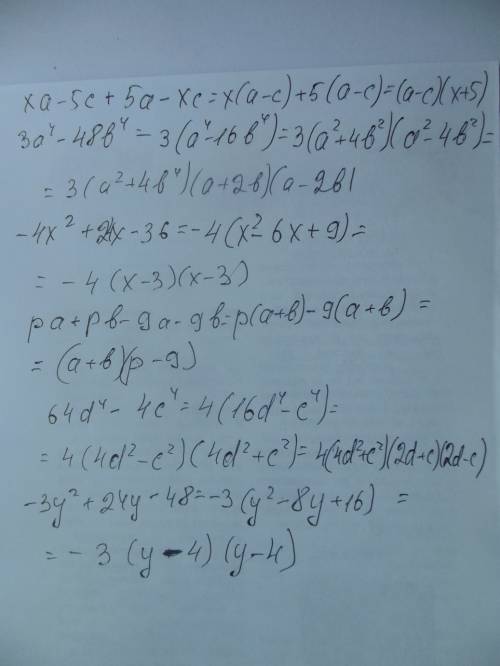 xa-5c+5a-xc=x(a-c)+5(a-c)=(a-c)(x+5)
3a⁴-48b⁴-3(a⁴-16b⁴)=3(a²+4b²)(a²-4b²)=
=3(a²+4b⁴)(a+2b)(a-2b)
-4x²+24x-36=-4(x²-6x+9)=
=-4(x-3)(x-3)
pa+pb-ga-gb=p(a+b)-g(a+b)=
=(a+b)(p-g)
64d⁴-4c⁴=4(16d⁴-c⁴)=
=4(4d²-c²)(4d²+c²)=4(4d²+c²)(2d+c)(2d-c)
-3y²+24y-48=-3(y²-8y+16)=
=-3(y-4)(y-4)